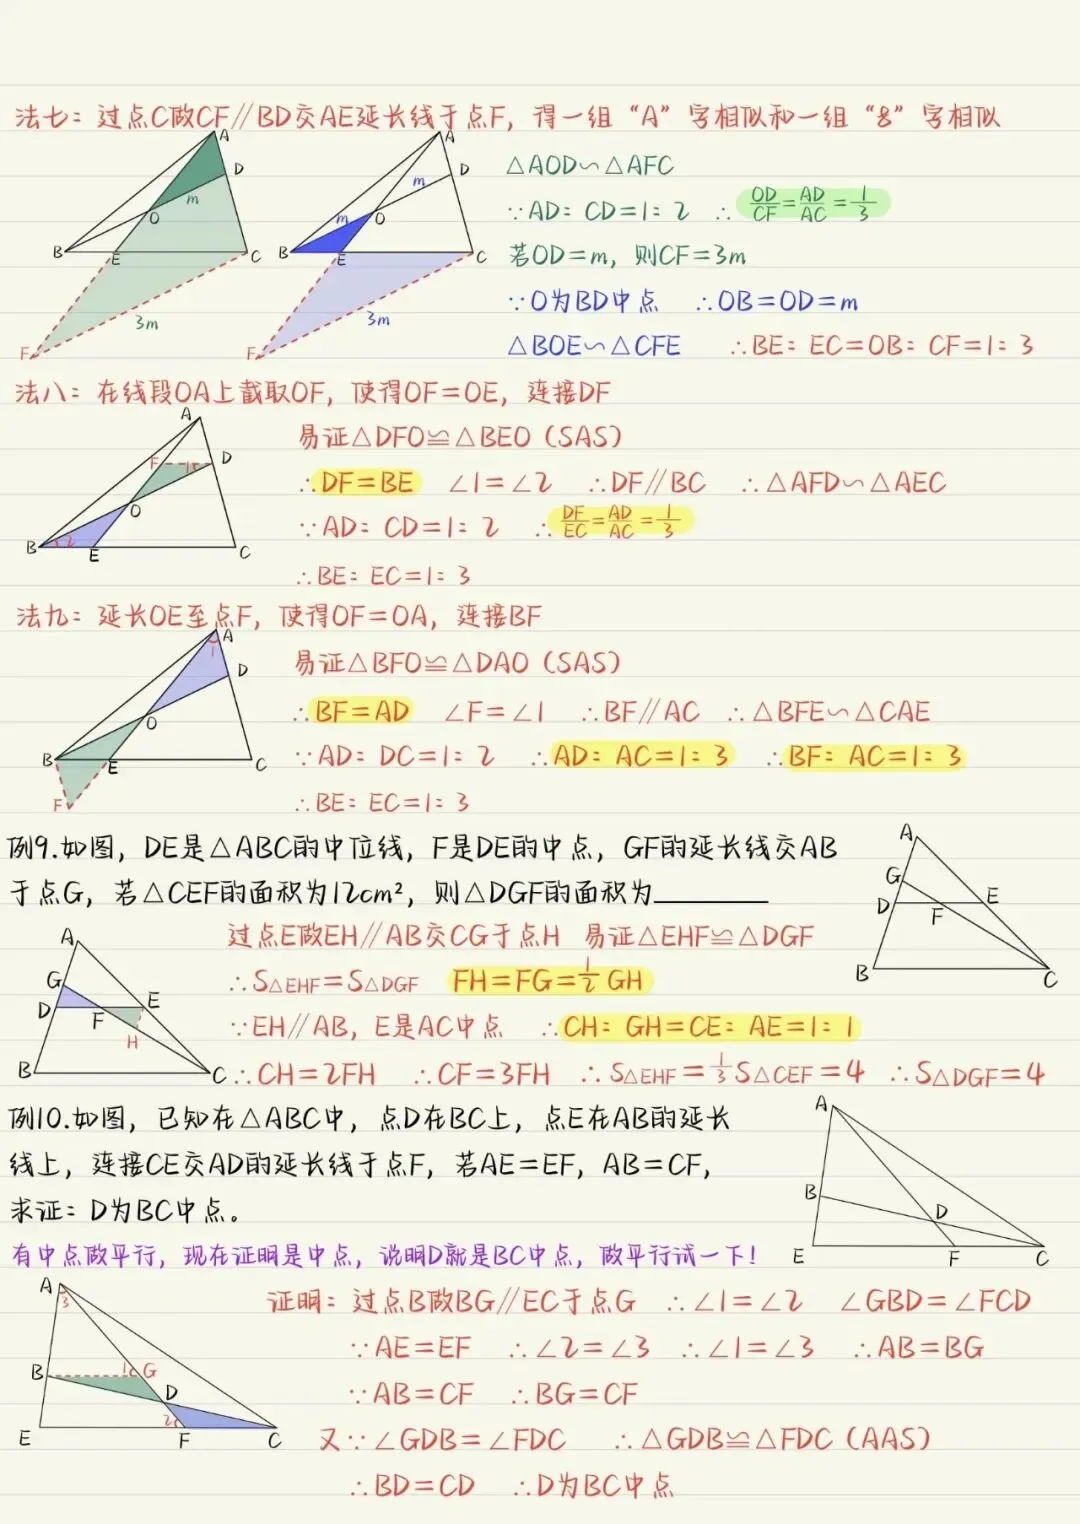 法七：过点C做CF∥BD交AE延长线于点F，得一组“A”字相似和一组“8”字相似
A
D
m
O
B
E
C
3m
F
A
D
m
m
O
B
E
C
3m
F
△AOD∽△AFC
∵AD：CD=1：2 ∴OD/CF=AD/AC=1/3
若OD=m，则CF=3m
∵O为BD中点 ∴OB=OD=m
△BOE∽△CFE ∴BE：EC=OB：CF=1：3
法八：在线段OA上截取OF，使得OF=OE，连接DF
A
F
1
D
O
B
2
E
C
易证△DFO≌△BEO（SAS）
∴DF=BE ∠1=∠2 ∴DF∥BC ∴△AFD∽△AEC
∵AD：CD=1：2 ∴DF/EC=AD/AC=1/3
∴BE：EC=1：3
法九：延长OE至点F，使得OF=OA，连接BF
A
1
D
O
B
E
C
F
易证△BFO≌△DAO（SAS）
∴BF=AD ∠F=∠1 ∴BF∥AC ∴△BFE∽△CAE
∵AD：DC=1：2 ∴AD：AC=1：3 ∴BF：AC=1：3
∴BE：EC=1：3
例9.如图，DE是△ABC的中位线，F是DE的中点，GF的延长线交AB
于点G，若△CEF的面积为12cm²，则△DGF的面积为________
A
G
D
E
F
B
C
A
G
D
E
F
H
B
C
过点E做EH∥AB交CG于点H 易证△EHF≌△DGF
∴S△EHF=S△DGF FH=FG=1/2 GH
∵EH∥AB，E是AC中点 ∴CH：GH=CE：AE=1：1
∴CH=2FH ∴CF=3FH ∴S△EHF=1/3 S△CEF=4 ∴S△DGF=4
例10.如图，已知在△ABC中，点D在BC上，点E在AB的延长
线上，连接CE交AD的延长线于点F，若AE=EF，AB=CF，
求证：D为BC中点。
A
B
D
E
F
C
有中点做平行，现在证明是中点，说明D就是BC中点，做平行试一下！
A
3
B
1
G
D
2
E
F
C
证明：过点B做BG∥EC于点G ∴∠1=∠2 ∠GBD=∠FCD
∵AE=EF ∴∠2=∠3 ∴∠1=∠3 ∴AB=BG
∵AB=CF ∴BG=CF
又∵∠GDB=∠FDC ∴△GDB≌△FDC（AAS）
∴BD=CD ∴D为BC中点